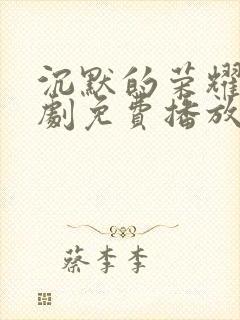 沉默的荣耀
劇免費播放
蔡李李